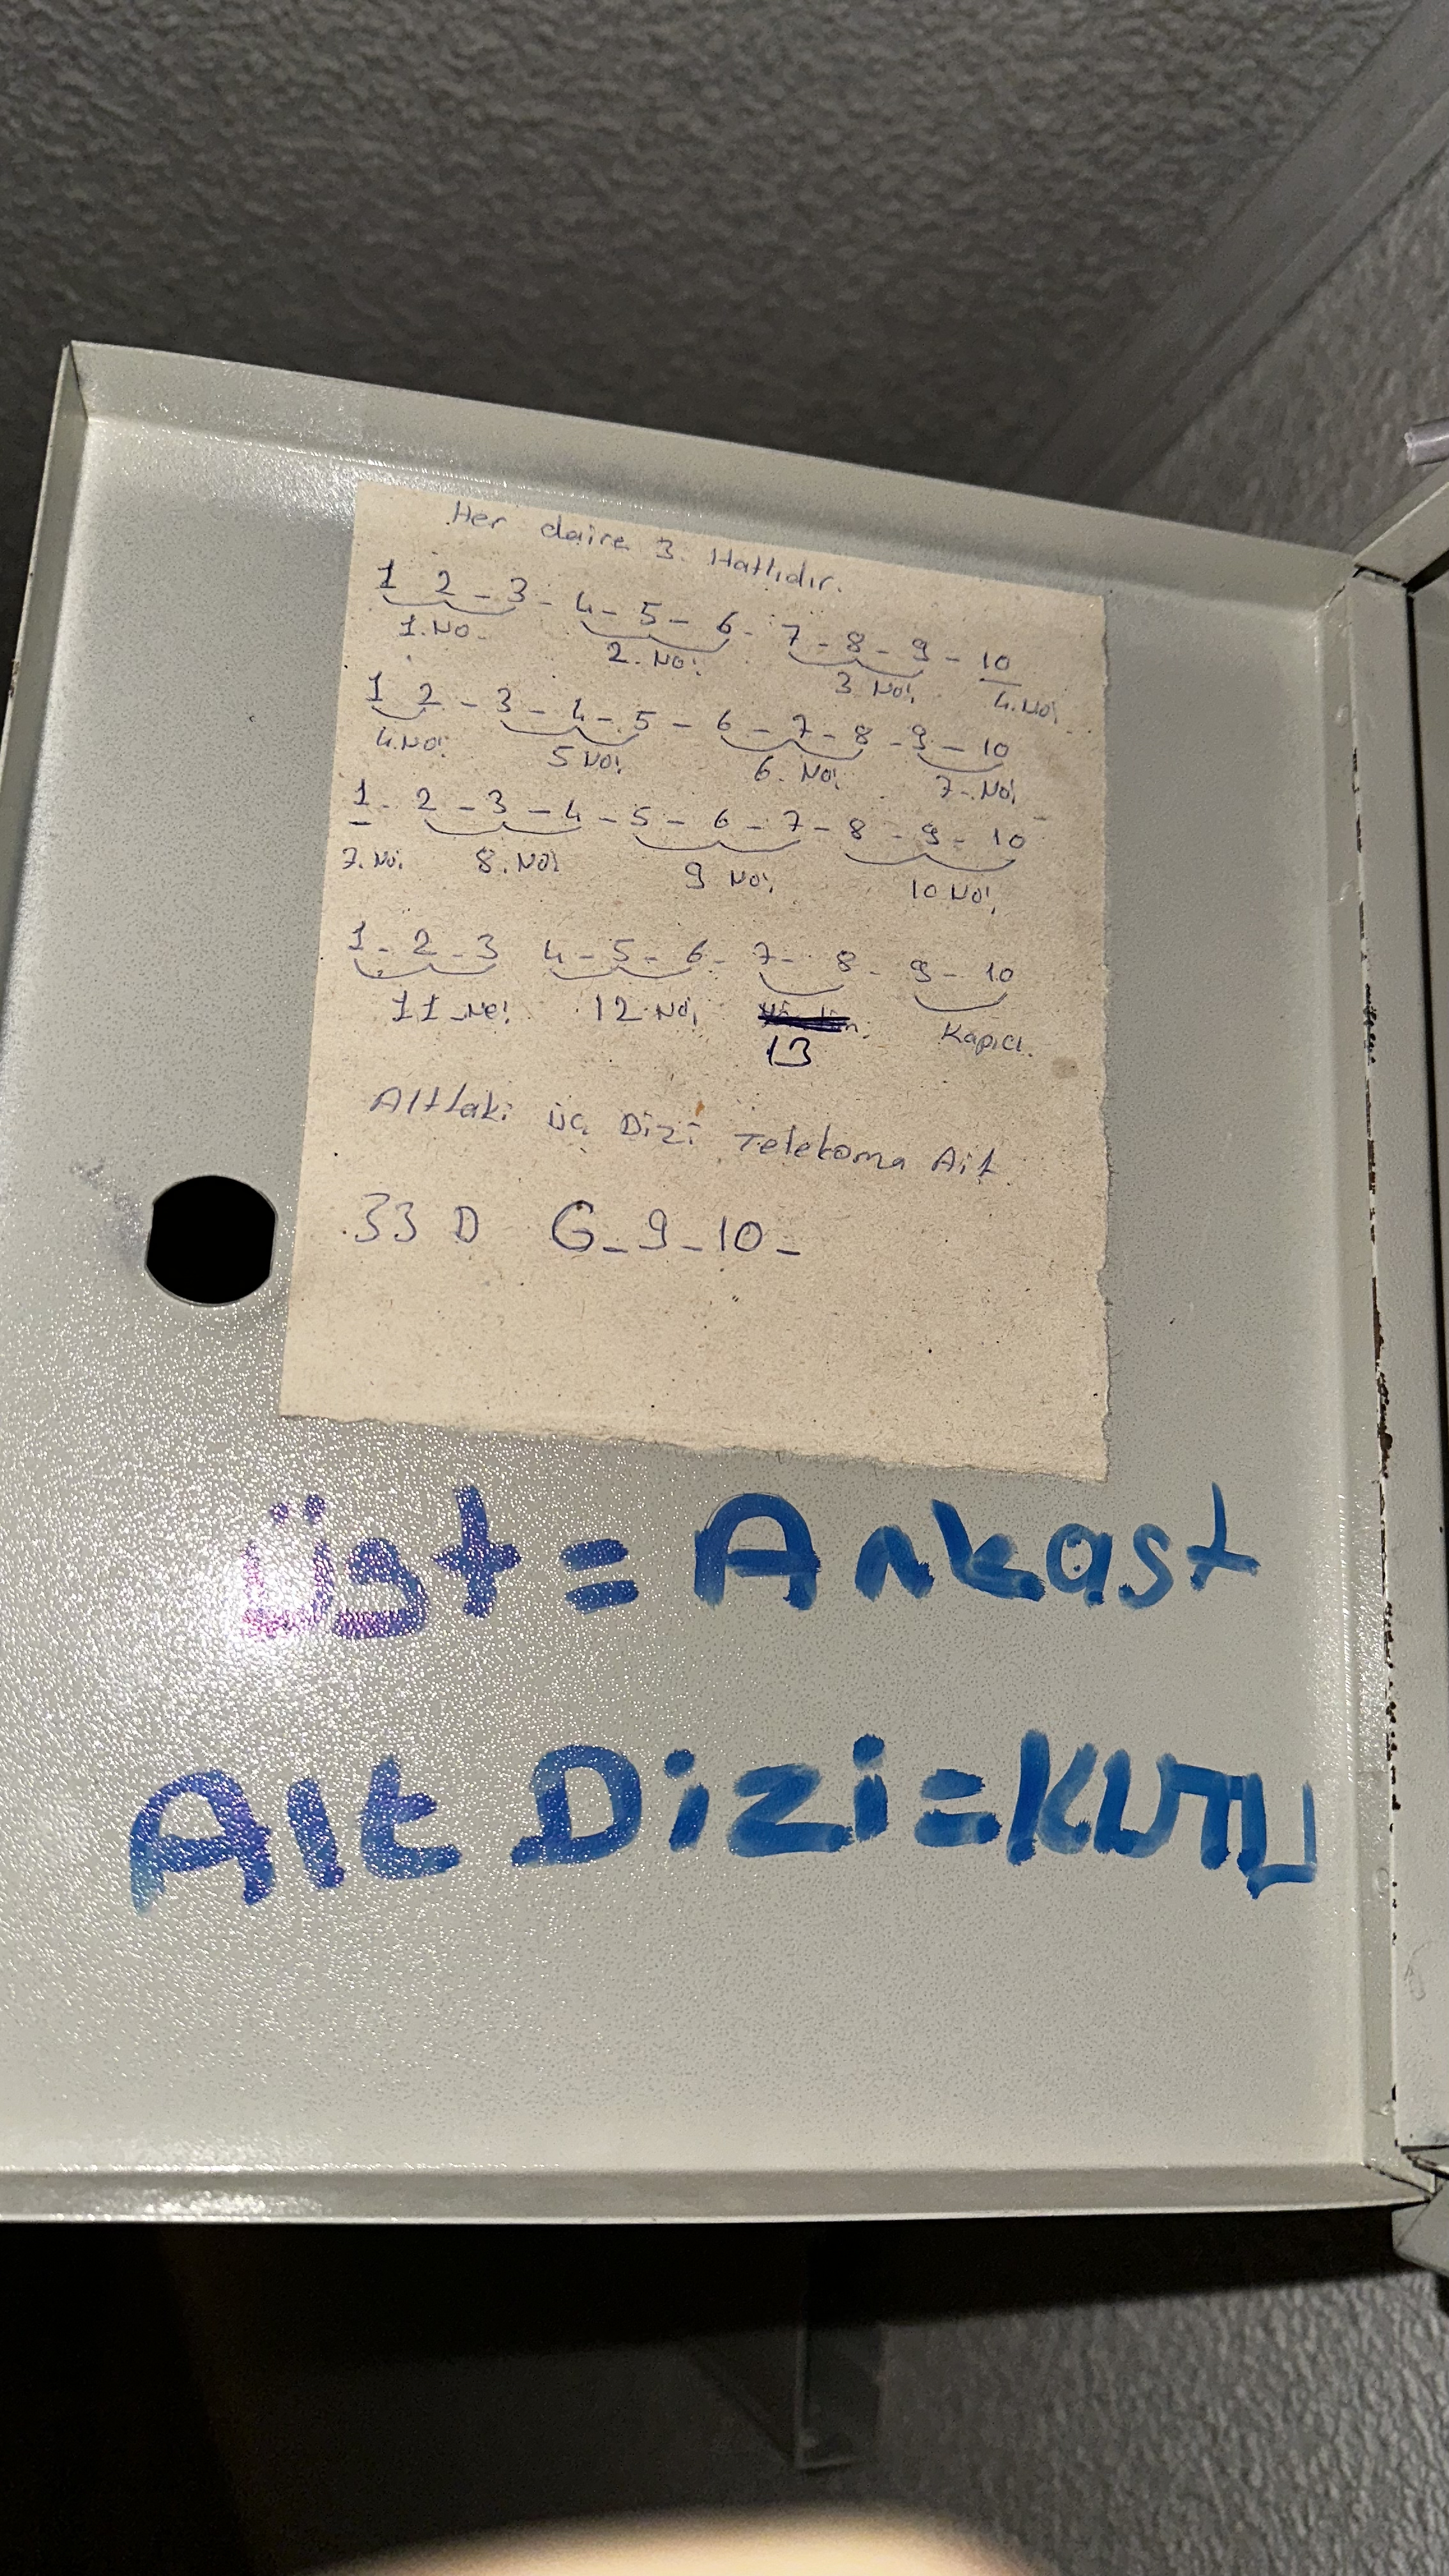 Her daire 3. Hatlıdır.
1 2 - 3 - 4 - 5 - 6 - 7 - 8 - 9 - 10
1. No. 2. No: 3 No: 4. No:
1 2 - 3 - 4 - 5 - 6 - 7 - 8 - 9 - 10
4. No: 5 No: 6. No: 7. No:
1 - 2 - 3 - 4 - 5 - 6 - 7 - 8 - 9 - 10
7. No: 8. No: 9 No: 10 No:
1 - 2 - 3 4 - 5 - 6 - 7 - 8 - 9 - 10
11 - No: 12 No: Kapıcı.
13
Alttaki üç Dizi Telekoma Ait
33 D G - 9 - 10 -
üst = Ankast
Alt Dizi = KUTU